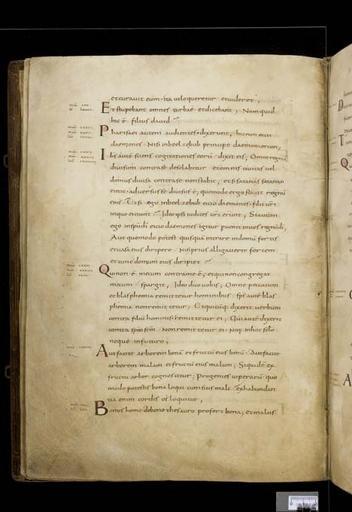 et curavit eum ita ut loqueretur et videret;
Et stupebant omnes turbae et dicebant; Numquid
hic est filius david?
Pharisaei autem audientes dixerunt; hic non eicit
daemones nisi in beelzebub principe daemoniorum;
Ihs autem sciens cogitationes eorum dixit eis; Omne regnum
divisum contra se desolabitur et omnis civitas vel
domus divisa contra se non stabit; et si satanas satanan
eicit adversus se divisus est; quomodo ergo stabit regnum
eius? Et si ego in beelzebub eicio daemones filii vestri
in quo eiciunt? Ideo ipsi iudices vestri erunt; Si autem
ego in spu di eicio daemones igitur pervenit in vos regnum di;
Aut quomodo potest quisquam intrare in domum fortis
et vasa eius diripere nisi prius alligaverit fortem
et tunc domum eius diripiet?
Qui non est mecum contra me est; et qui non congregat
mecum spargit; Ideo dico vobis; Omne peccatum
et blasphemia remittetur hominibus sps autem blas
phemia non remittetur; Et quicumque dixerit verbum
contra filium hominis remittetur ei; Qui autem dixerit
contra spm scm non remittetur ei neque in hoc sclo
neque in futuro;
Aut facite arborem bonam et fructum eius bonum; Aut facite
arborem malam et fructum eius malum; Siquidem ex
fructu arbor cognoscitur; Progenies viperarum quo
modo potestis bona loqui cum sitis mali; Ex habundan
tia enim cordis os loquitur;
Bonus homo de bono thesauro profert bona; et malus